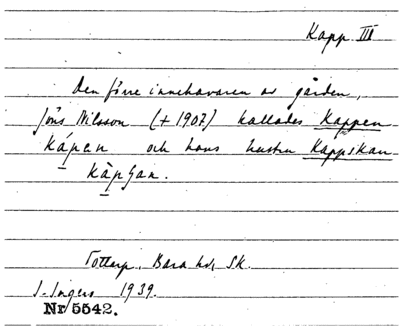 Kapp III
Den förre innehavaren av gården,
Jöns Nilsson (+1907) kallades Kappen
kápan och hans hustru Kappskan
kàpʃan.
Tottarp, Bara hd, Sk.
I. Ingers 1939.
Nr 5542.